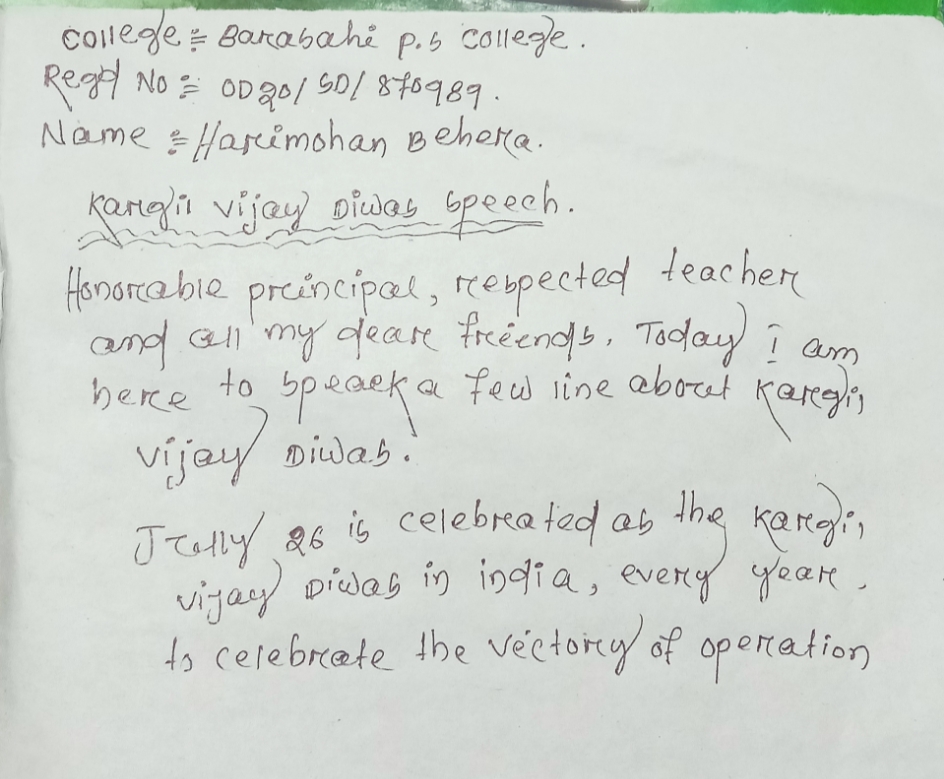 College = Barabahi p.s College.
Regd No = OD20/SD/870989.
Name = Harimohan Behera.
Kargil vijay Diwas speech.
Honorable principal, respected teacher
and all my dear friends. Today i am
here to speak a few line about Kargil
vijay Diwas.
July 26 is celebreated as the Kargil
vijay Diwas in india, every year,
to celebrate the victory of operation